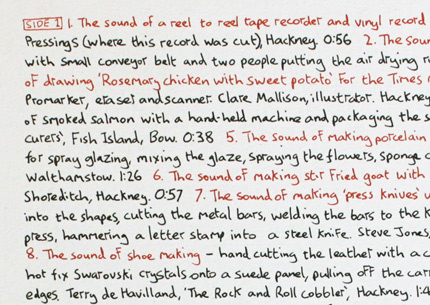 SIDE 1 1. The sound of a reel to reel tape recorder and vinyl record
Pressings (where this record was cut), Hackney. 0:56 2. The soun
with small conveyor belt and two people putting the air drying r
of drawing 'Rosemary chicken with sweet potato' for the Times n
Promarker, eraser and scanner. Clare Mallison, illustrator. Hackney
of smoked salmon with a hand-held machine and packaging the s
curers', Fish Island, Bow. 0:38 5. The sound of making porcelain
for spray glazing, mixing the glaze, spraying the flowers, sponge c
Walthamstow. 1:26 6. The sound of making stir fried goat with
Shoreditch, Hackney. 0:57 7. The sound of making 'press knives' u
into the shapes, cutting the metal bars, welding the bars to the k
press, hammering a letter stamp into a steel knife. Steve Jones,
8. The sound of shoe making - hand cutting the leather with a c
hot fix Swarovski crystals onto a suede panel, pulling off the car
edges. Terry de Havilland, 'The Rock and Roll cobbler', Hackney. 1:4